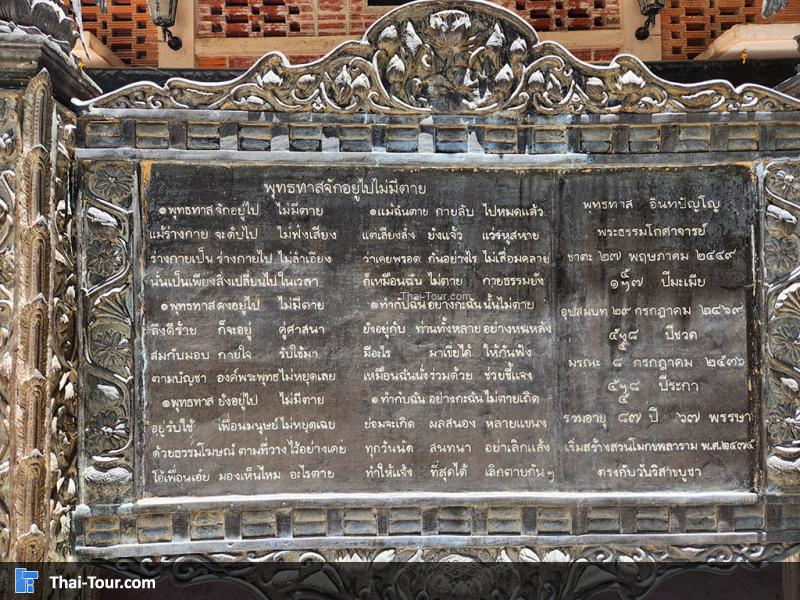 พุทธทาสจักอยู่ไปไม่มีตาย
๑พุทธทาสจักอยู่ไป ไม่มีตาย
แม้ร่างกาย จะดับไป ไม่ฟังเสียง
ร่างกายเป็น ร่างกายไป ไม่ลำเอียง
นั่นเป็นเพียงสิ่งเปลี่ยนไปในเวลา
๑พุทธทาสคงอยู่ไป ไม่มีตาย
ถึงดีร้าย ก็จะอยู่ คู่ศาสนา
สมกับมอบ กายใจ รับใช้มา
ตามบัญชา องค์พระพุทธไม่หยุดเลย
๑พุทธทาส ยังอยู่ไป ไม่มีตาย
อยู่รับใช้ เพื่อนมนุษย์ไม่หยุดเฉย
ด้วยธรรมโฆษณ์ ตามที่วาง ไว้อย่างเคย
โอ้เพื่อนเอ๋ย มองเห็นไหม อะไรตาย
๑แม้ฉันตาย กายลับ ไปหมดแล้ว
แต่เสียงสั่ง ยังแจ้ว แว่วหูสหาย
ว่าเคยพรอด กันอย่างไร ไม่เสื่อมคลาย
ก็เหมือนฉัน ไม่ตาย กายธรรมยัง
๑ทำกับฉันอย่างกะฉัน นั้นไม่ตาย
ยังอยู่กับ ท่านทั้งหลายอย่างหนหลัง
มีอะไร มาเขี่ยไค้ ให้กันฟัง
เหมือนฉันนั่งร่วมด้วย ช่วยชี้แจง
๑ทำกับฉันอย่างกะฉัน ไม่ตายเถิด
ย่อมจะเกิด ผลสนอง หลายแขนง
ทุกวันนัด สนทนา อย่าเลิกแล้ง
ทำให้แจ้ง ที่สุดได้ เลิกตายกันๆ
พุทธทาส อินทปัญโญ
พระธรรมโกศาจารย์
ชาตะ ๒๗ พฤษภาคม ๒๔๔๙
ปีมะเมีย
อุปสมบท ๒๙ กรกฎาคม ๒๔๖๙
ปีขาล
มรณะ ๘ กรกฎาคม ๒๕๓๖
ปีระกา
รวมอายุ ๘๗ ปี ๖๗ พรรษา
เริ่มสร้างสวนโมกขพลาราม พ.ศ.๒๔๗๕
ตรงกับวันวิสาขบูชา
Thai-Tour.com
Thai-Tour.com